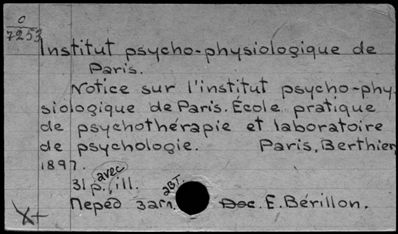 0
7253
Institut psycho-physiologique de
Paris.
Notice sur l'institut psycho-phy-
siologique de Paris. École pratique
de psychothérapie et laboratoire
de psychologie. Paris, Berthier,
1897.
avec
31 p., ill.
2вт.
Перед загл. Doc. E. Bérillon.